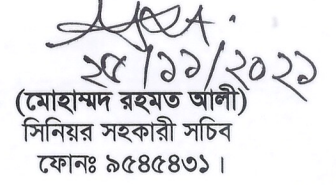 ২৫/১১/২০২১
(মোহাম্মদ রহমত আলী)
সিনিয়র সহকারী সচিব
ফোনঃ ৯৫৪৫৪৩১।